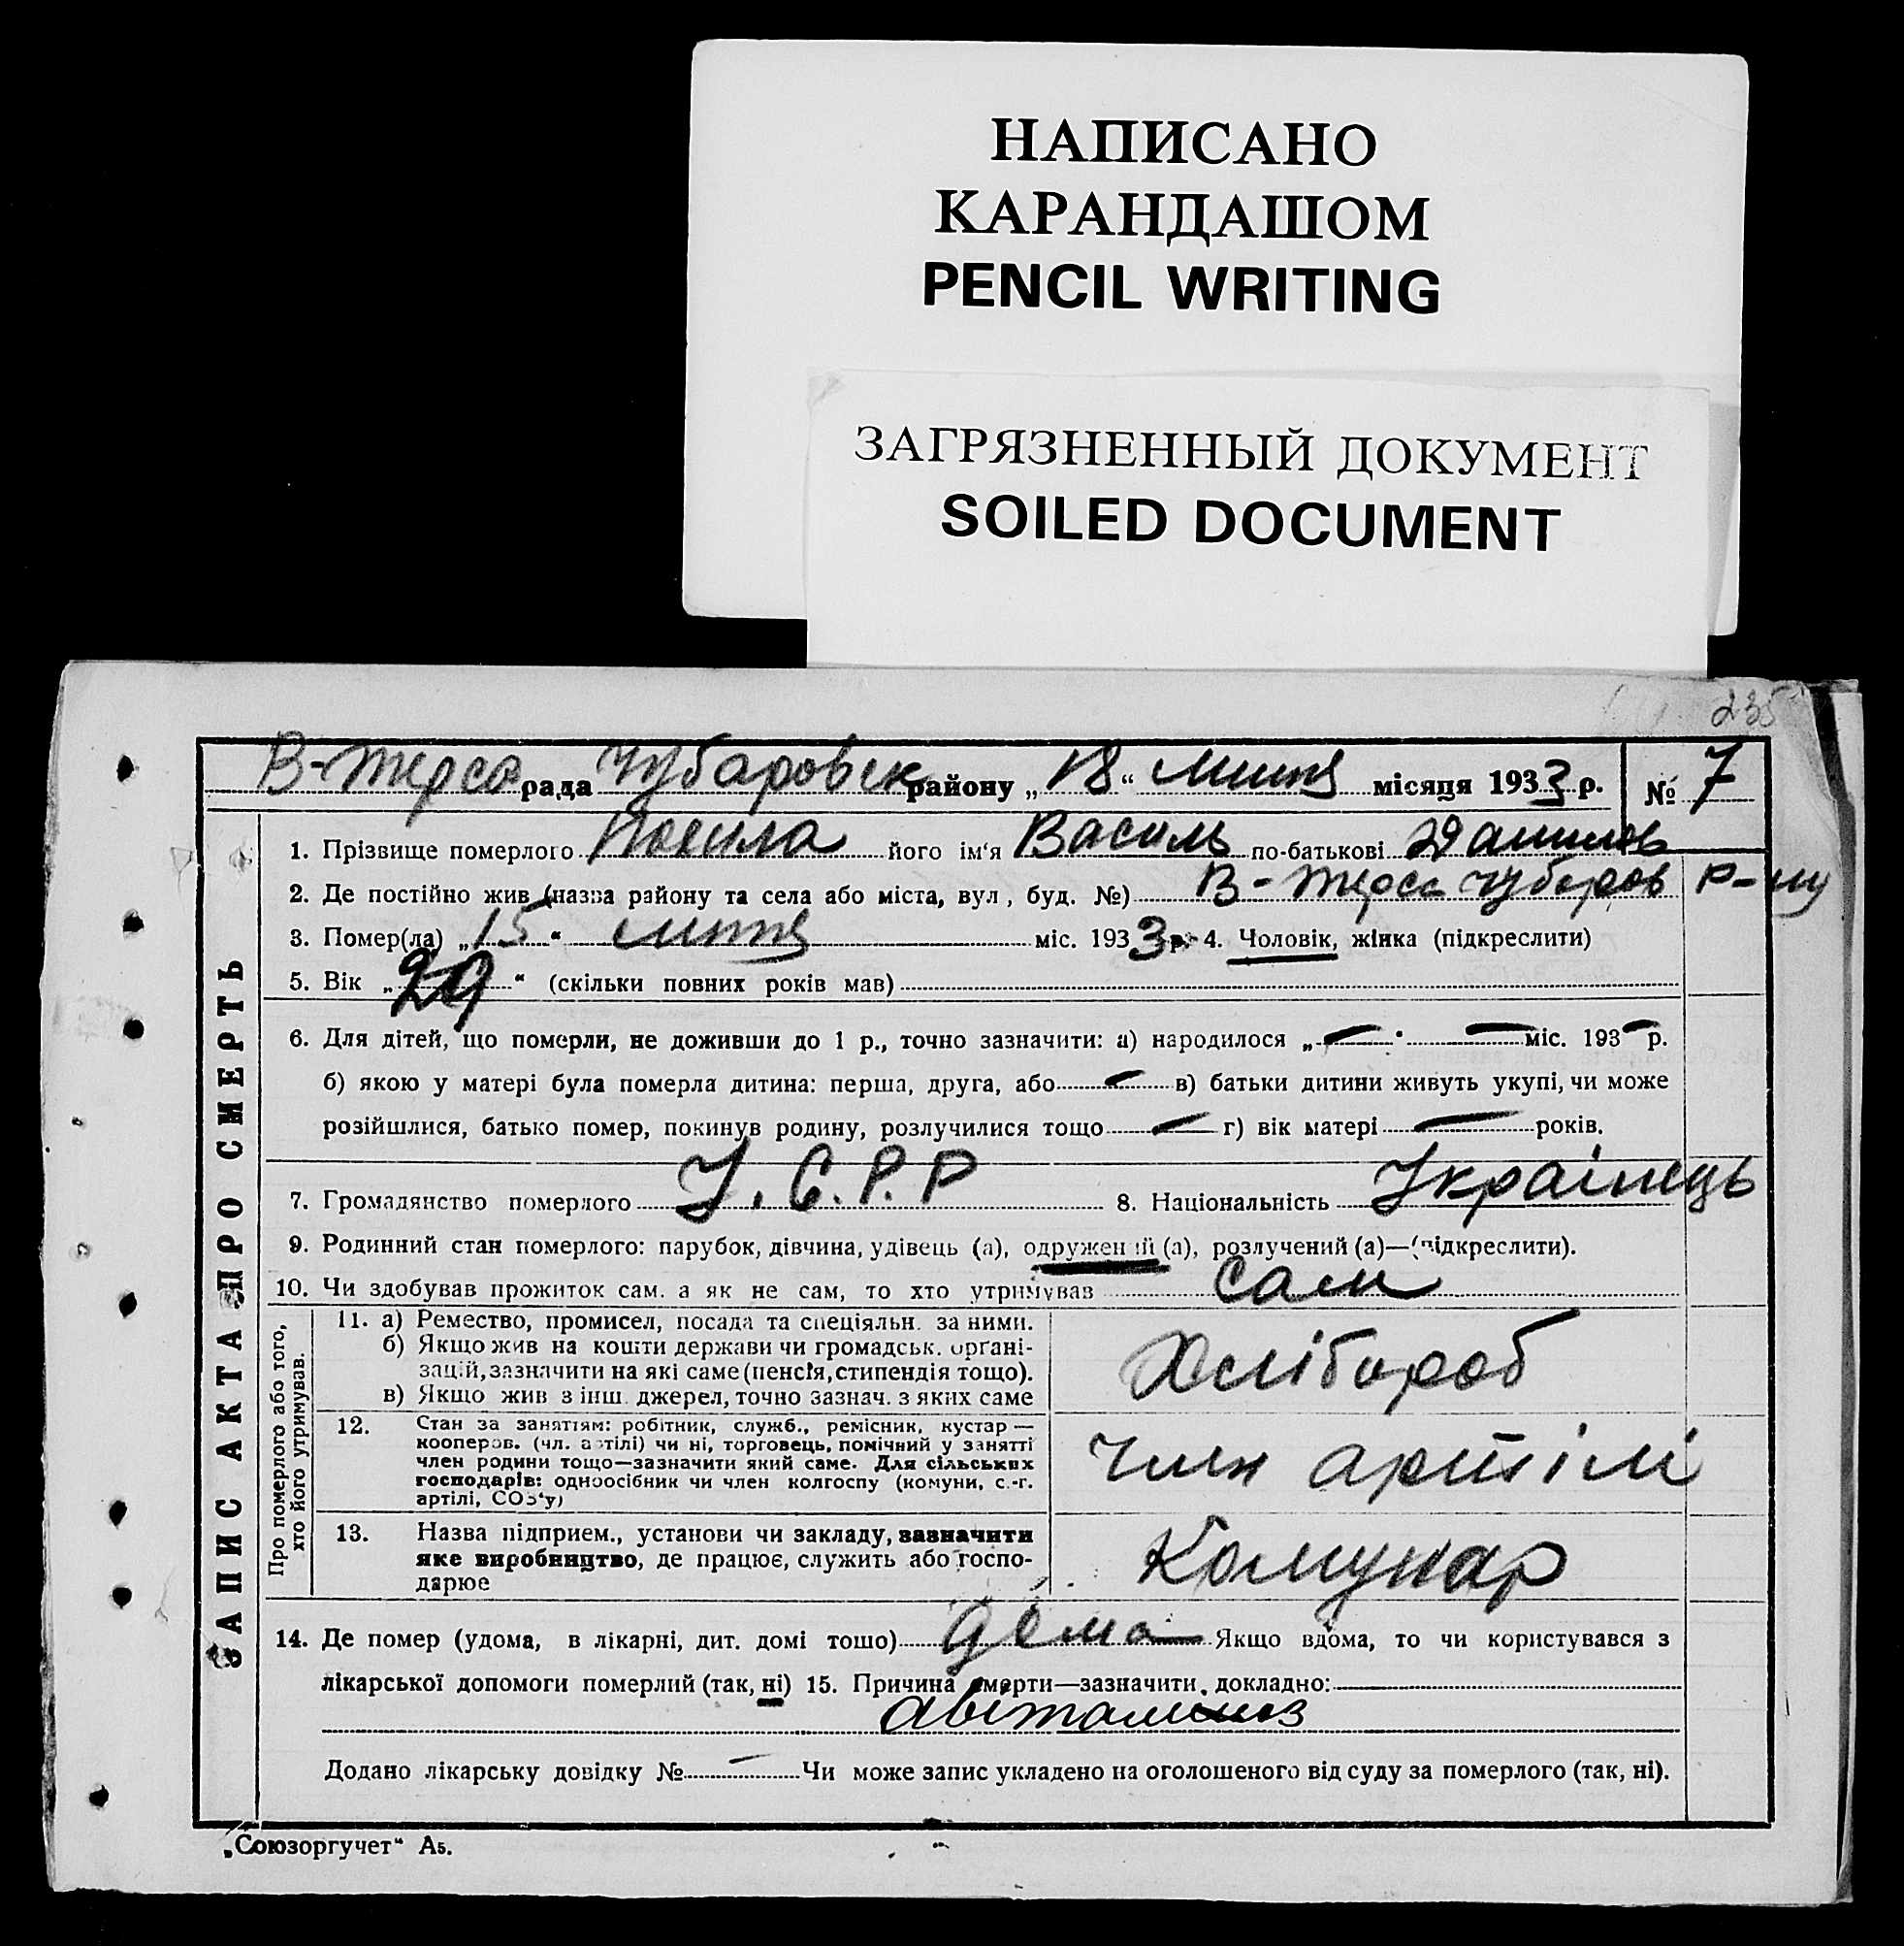 НАПИСАНО
КАРАНДАШОМ
PENCIL WRITING
ЗАГРЯЗНЕННЫЙ ДОКУМЕНТ
SOILED DOCUMENT
235
В-Терса рада Чубаровск району „18“ липня місяця 1933 р. № 7
ЗАПИС АКТА ПРО СМЕРТЬ
1. Прізвище померлого Похила його ім'я Василь по-батькові Данилов
2. Де постійно жив (назва району та села або міста, вул, буд. №) В-Терса Чубаров р-ну
3. Помер(ла) „15“ липня міс. 1933 р. 4. Чоловік, жінка (підкреслити)
5. Вік „29“ (скільки повних років мав)
6. Для дітей, що померли, не доживши до 1 р., точно зазначити: а) народилося „—“ — міс. 193— р.
б) якою у матері була померла дитина: перша, друга, або — в) батьки дитини живуть укупі, чи може
розійшлися, батько помер, покинув родину, розлучилися тощо — г) вік матері — років.
7. Громадянство померлого У.С.Р.Р 8. Національність Українець
9. Родинний стан померлого: парубок, дівчина, удівець (а), одружений (а), розлучений (а)—(підкреслити).
10. Чи здобував прожиток сам. а як не сам, то хто утримував сам
Про померлого або того,
хто його утримував.
11. а) Ремество, промисел, посада та спеціяльн. за ними.
б) Якщо жив на кошти держави чи громадськ. органі-
зацій, зазначити на які саме (пенсія, стипендія тощо).
в) Якщо жив з інш. джерел, точно зазнач. з яких саме
Хлібороб
12. Стан за заняттям: робітник, служб., ремісник, кустар—
кооперов. (чл. артілі) чи ні, торговець, помічний у занятті
член родини тощо—зазначити який саме. Для сільських
господарів: одноосібник чи член колгоспу (комуни, с.-г.
артілі, СОЗ'у)
член артілі
13. Назва підприєм., установи чи закладу, зазначити
яке виробництво, де працює, служить або госпо-
дарює
Комунар
14. Де помер (удома, в лікарні, дит. домі тощо) дома Якщо вдома, то чи користувався з
лікарської допомоги померлий (так, ні) 15. Причина смерти—зазначити докладно:
авітаміноз
Додано лікарську довідку № — Чи може запис укладено на оголошеного від суду за померлого (так, ні).
„Союзоргучет“ А5.